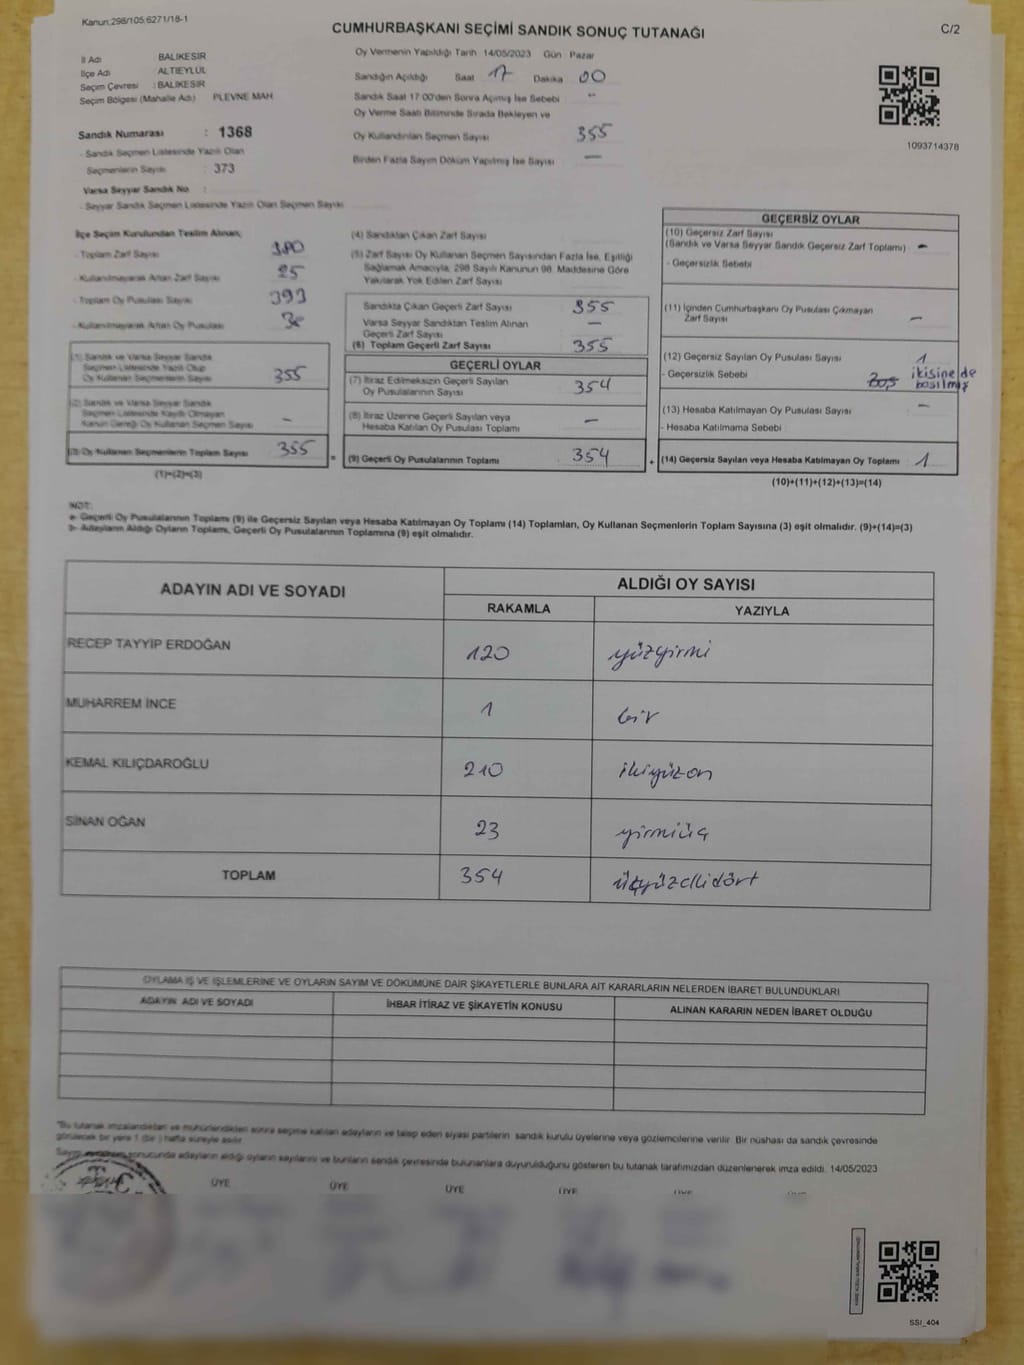 Kanun:298/105;6271/18-1
CUMHURBAŞKANI SEÇİMİ SANDIK SONUÇ TUTANAĞI
C/2
İl Adı BALIKESİR
İlçe Adı ALTIEYLÜL
Seçim Çevresi : BALIKESİR
Seçim Bölgesi (Mahalle Adı) PLEVNE MAH
Sandık Numarası : 1368
- Sandık Seçmen Listesinde Yazılı Olan
Seçmenlerin Sayısı 373
Varsa Seyyar Sandık No :
- Seyyar Sandık Seçmen Listesinde Yazılı Olan Seçmen Sayısı
Oy Vermenin Yapıldığı Tarih 14/05/2023 Gün Pazar
Sandığın Açıldığı Saat 17 Dakika 00
Sandık Saat 17:00'den Sonra Açımış İse Sebebi --
Oy Verme Saati Bitiminde Sırada Bekleyen ve
Oy Kullandırılan Seçmen Sayısı 355
Birden Fazla Sayım Döküm Yapılmış İse Sayısı —
1093714378
İlçe Seçim Kurulundan Teslim Alınan;
- Toplam Zarf Sayısı 380
- Kullanılmayarak Artan Zarf Sayısı 25
- Toplam Oy Pusulası Sayısı 393
- Kullanılmayarak Artan Oy Pusulası
(1) Sandık ve Varsa Seyyar Sandık
Seçmen Listesinde Yazılı Olup
Oy Kullanan Seçmenlerin Sayısı 355
(2) Sandık ve Varsa Seyyar Sandık
Seçmen Listesinde Kayıtlı Olmayan
Kanun Gereği Oy Kullanan Seçmen Sayısı -
(3) Oy Kullanan Seçmenlerin Toplam Sayısı 355
(1)+(2)=(3)
(4) Sandıktan Çıkan Zarf Sayısı
(5) Zarf Sayısı Oy Kullanan Seçmen Sayısından Fazla İse, Eşitliği
Sağlamak Amacıyla, 298 Sayılı Kanunun 98. Maddesine Göre
Yakılarak Yok Edilen Zarf Sayısı
Sandıkta Çıkan Geçerli Zarf Sayısı 355
Varsa Seyyar Sandıktan Teslim Alınan
Geçerli Zarf Sayısı —
(6) Toplam Geçerli Zarf Sayısı 355
GEÇERLİ OYLAR
(7) İtiraz Edilmeksizin Geçerli Sayılan
Oy Pusulalarının Sayısı 354
(8) İtiraz Üzerine Geçerli Sayılan veya
Hesaba Katılan Oy Pusulası Toplamı —
= (9) Geçerli Oy Pusulalarının Toplamı 354
GEÇERSİZ OYLAR
(10) Geçersiz Zarf Sayısı
(Sandık ve Varsa Seyyar Sandık Geçersiz Zarf Toplamı) -
- Geçersizlik Sebebi
(11) İçinden Cumhurbaşkanı Oy Pusulası Çıkmayan
Zarf Sayısı —
(12) Geçersiz Sayılan Oy Pusulası Sayısı 1
- Geçersizlik Sebebi ikisinede
basılmış
(13) Hesaba Katılmayan Oy Pusulası Sayısı —
- Hesaba Katılmama Sebebi
+ (14) Geçersiz Sayılan veya Hesaba Katılmayan Oy Toplamı 1
(10)+(11)+(12)+(13)=(14)
NOT:
a- Geçerli Oy Pusulalarının Toplamı (9) ile Geçersiz Sayılan veya Hesaba Katılmayan Oy Toplamı (14) Toplamları, Oy Kullanan Seçmenlerin Toplam Sayısına (3) eşit olmalıdır. (9)+(14)=(3)
b- Adayların Aldığı Oyların Toplamı, Geçerli Oy Pusulalarının Toplamına (9) eşit olmalıdır.
ADAYIN ADI VE SOYADI
ALDIĞI OY SAYISI
RAKAMLA YAZIYLA
RECEP TAYYİP ERDOĞAN 120 yüzyirmi
MUHARREM İNCE 1 bir
KEMAL KILIÇDAROĞLU 210 ikiyüzon
SİNAN OĞAN 23 yirmiüç
TOPLAM 354 üçyüzellidört
OYLAMA İŞ VE İŞLEMLERİNE VE OYLARIN SAYIM VE DÖKÜMÜNE DAİR ŞİKAYETLERLE BUNLARA AİT KARARLARIN NELERDEN İBARET BULUNDUKLARI
ADAYIN ADI VE SOYADI İHBAR İTİRAZ VE ŞİKAYETİN KONUSU ALINAN KARARIN NEDEN İBARET OLDUĞU
"Bu tutanak imzalandıktan ve mühürlendikten sonra seçime katılan adayların ve talep eden siyasi partilerin sandık kurulu üyelerine veya gözlemcilerine verilir. Bir nüshası da sandık çevresinde
görülecek bir yere 1 (bir) hafta süreyle asılır.
Sayım sonucunda adayların aldığı oyların sayılarını ve bunların sandık çevresinde bulunanlara duyurulduğunu gösteren bu tutanak tarafımızdan düzenlenerek imza edildi. 14/05/2023
ÜYE ÜYE ÜYE ÜYE
SSI_404